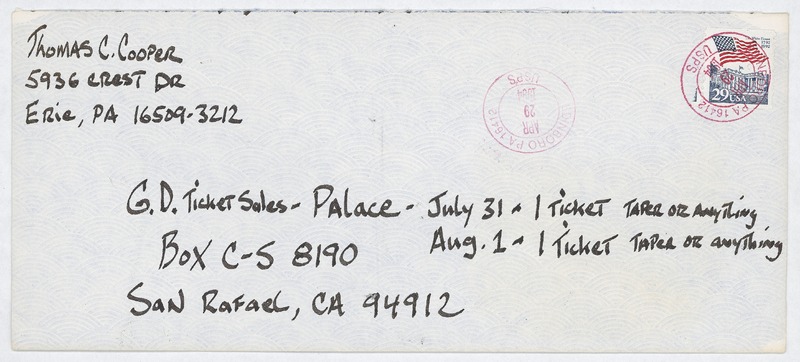 Thomas C. Cooper
5936 Crest Dr
Erie, PA 16509-3212
USPS
1994
APR
29
PA 16412
USPS
PA 16412
29 USA
G.D. Ticket Sales - Palace - July 31 - 1 Ticket Taper or Anything
Aug. 1 - 1 Ticket Taper or anything
Box C-S 8190
San Rafael, CA 94912